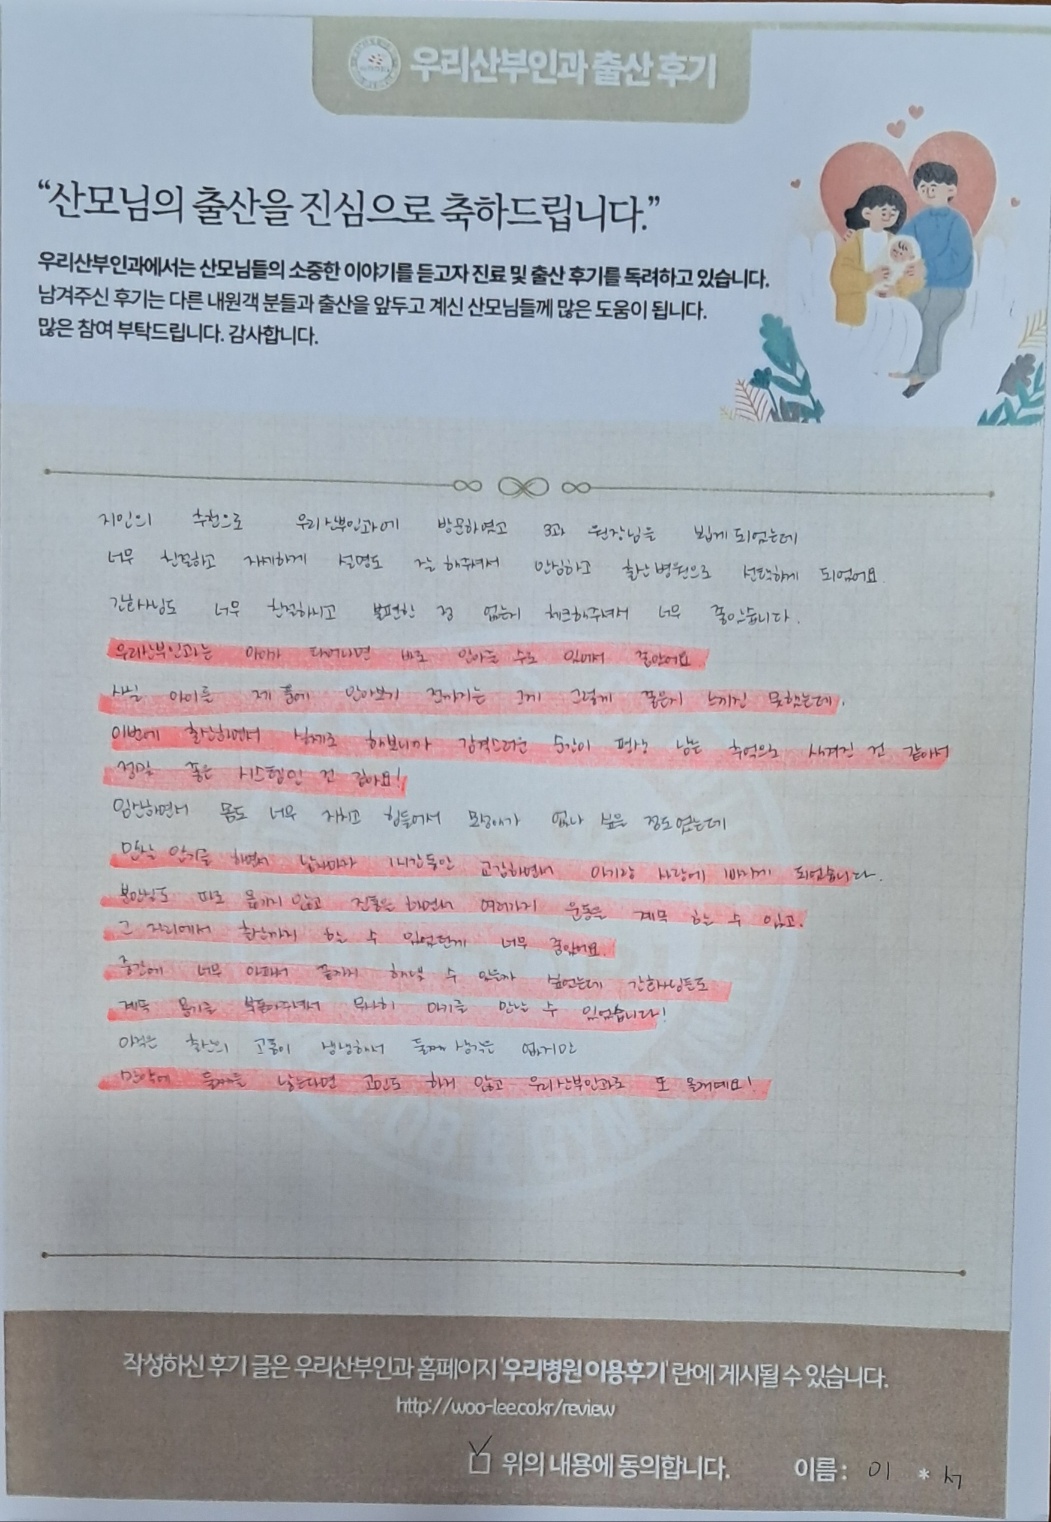 우리산부인과 출산 후기
“산모님의 출산을 진심으로 축하드립니다.”
우리산부인과에서는 산모님들의 소중한 이야기를 듣고자 진료 및 출산 후기를 독려하고 있습니다.
남겨주신 후기는 다른 내원객 분들과 출산을 앞두고 계신 산모님들께 많은 도움이 됩니다.
많은 참여 부탁드립니다. 감사합니다.
지인의 추천으로 우리산부인과에 방문하였고 3과 원장님을 뵙게 되었는데
너무 친절하고 자세하게 설명도 잘 해주셔서 안심하고 출산병원으로 선택하게 되었어요
간호사님도 너무 친절하시고 불편한 점 없는지 체크해주셔서 너무 좋았습니다.
우리산부인과는 아이가 태어나면 바로 안아볼 수도 있어서 좋았어요
사실 아이를 제 품에 안아보기 전까지는 그게 그렇게 좋은지 느끼진 못했는데,
이번에 출산하면서 실제로 해보니까 감격스러운 순간이 평생 남는 추억으로 새겨진 것 같아서
정말 좋은 시스템인 것 같아요!
임신하면서 몸도 너무 지치고 힘들어서 모성애가 없나 싶은 정도였는데
만삭 안기를 하면서 날마다 1시간동안 교감하면서 아기랑 사랑에 빠지게 되었습니다.
분만실도 따로 옮기지 않고 진통을 하면서 여러가지 운동을 계속 하는 수 있고,
그 자리에서 출산까지 하는 수 있었던게 너무 좋았어요.
중간에 너무 아파서 끝까지 해낼 수 있는가 싶었는데 간호사님들도
계속 용기를 북돋아주셔서 무사히 아기를 만날 수 있었습니다!
아직은 출산의 고통이 생생해서 둘째 생각은 없지만
만약에 둘째를 낳는다면 고민도 하지 않고 우리산부인과로 또 올거예요!
작성하신 후기 글은 우리산부인과 홈페이지 '우리병원 이용후기' 란에 게시될 수 있습니다.
http://woo-lee.co.kr/review
위의 내용에 동의합니다. 이름 : 이 * 서